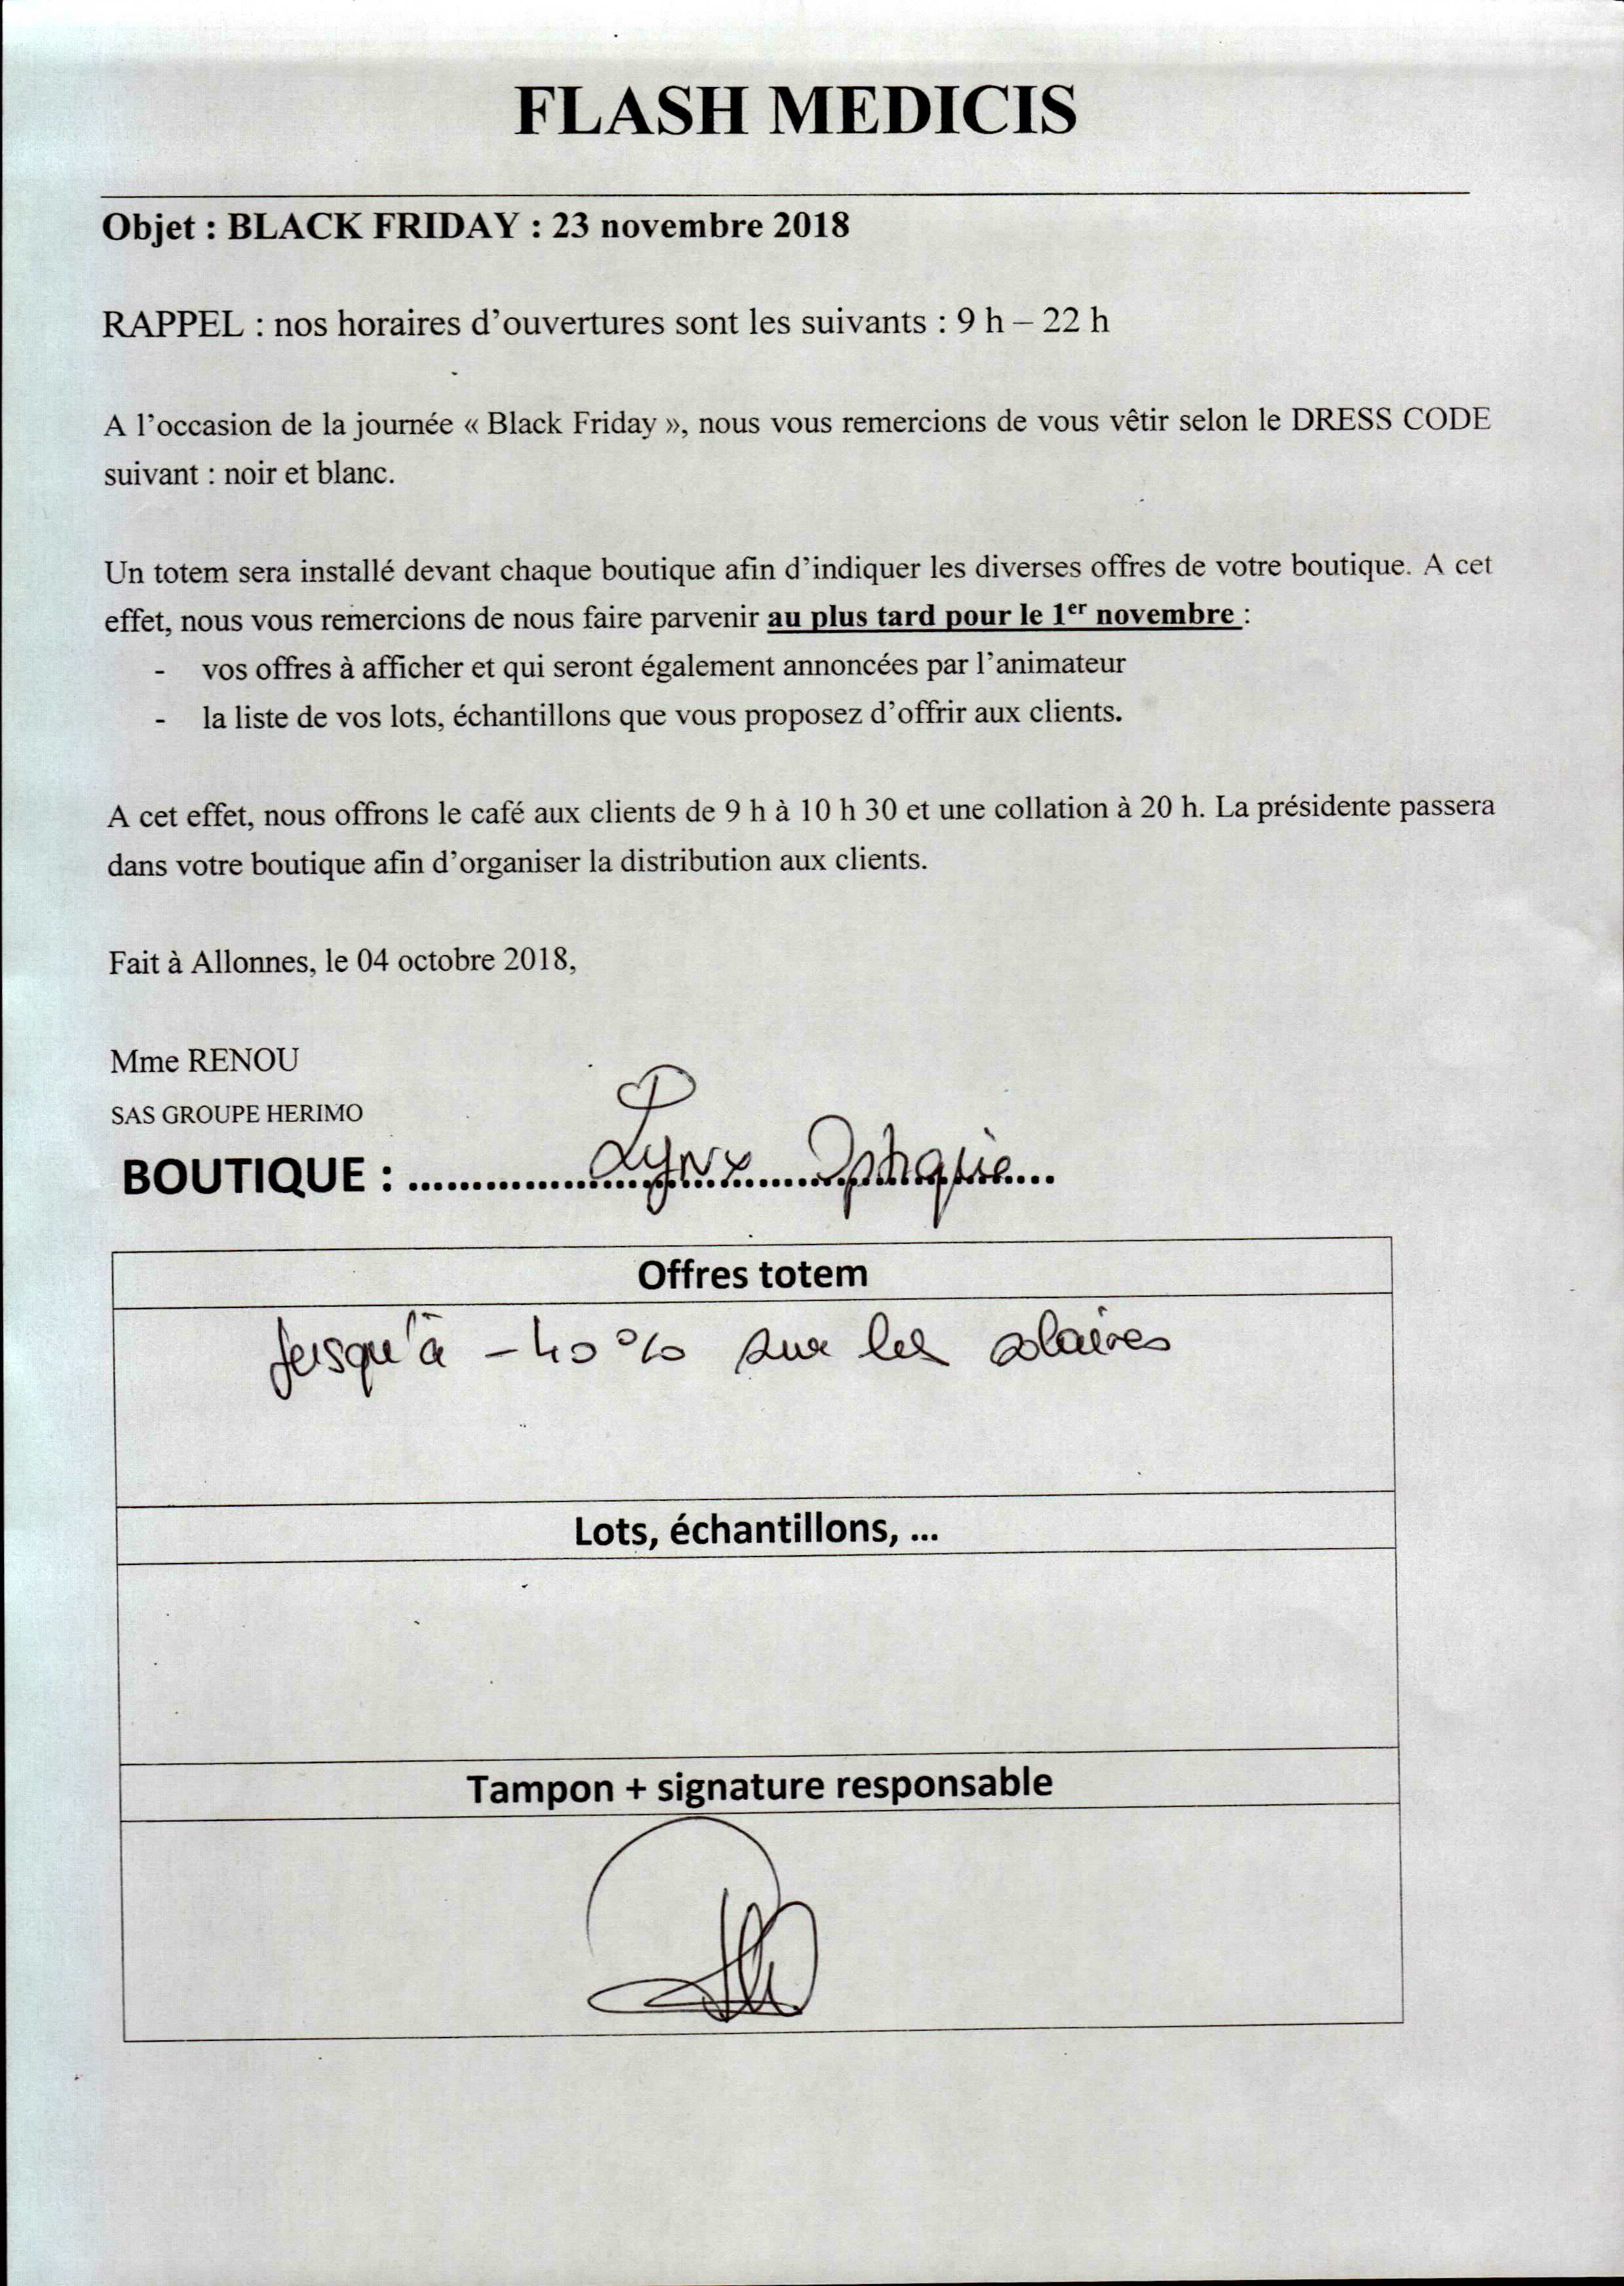 FLASH MEDICIS
Objet : BLACK FRIDAY : 23 novembre 2018
RAPPEL : nos horaires d’ouvertures sont les suivants : 9 h – 22 h
A l’occasion de la journée « Black Friday », nous vous remercions de vous vêtir selon le DRESS CODE
suivant : noir et blanc.
Un totem sera installé devant chaque boutique afin d’indiquer les diverses offres de votre boutique. A cet
effet, nous vous remercions de nous faire parvenir au plus tard pour le 1er novembre :
- vos offres à afficher et qui seront également annoncées par l’animateur
- la liste de vos lots, échantillons que vous proposez d’offrir aux clients.
A cet effet, nous offrons le café aux clients de 9 h à 10 h 30 et une collation à 20 h. La présidente passera
dans votre boutique afin d’organiser la distribution aux clients.
Fait à Allonnes, le 04 octobre 2018,
Mme RENOU
SAS GROUPE HERIMO
BOUTIQUE : Lynx Optique
Offres totem
Jusqu'à -40% sur les solaires
Lots, échantillons, ...
Tampon + signature responsable